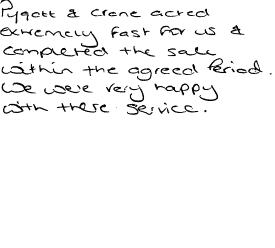 Pygott & Crone acted
extremely fast for us &
completed the sale
within the agreed Period.
We were very happy
with there service.